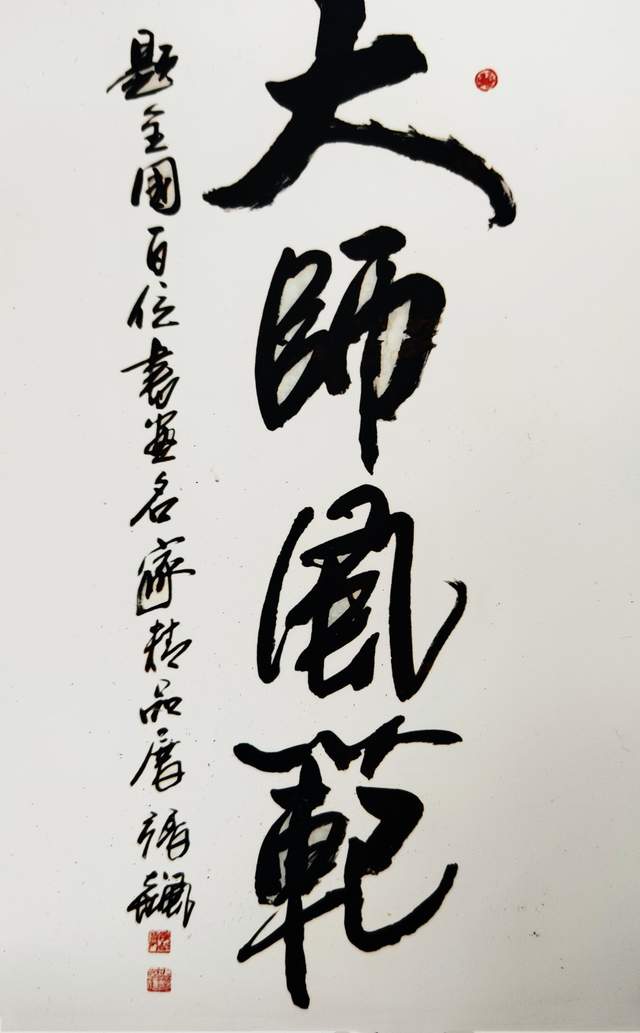 大師風範
題全國百位書畫名家精品展 張飆